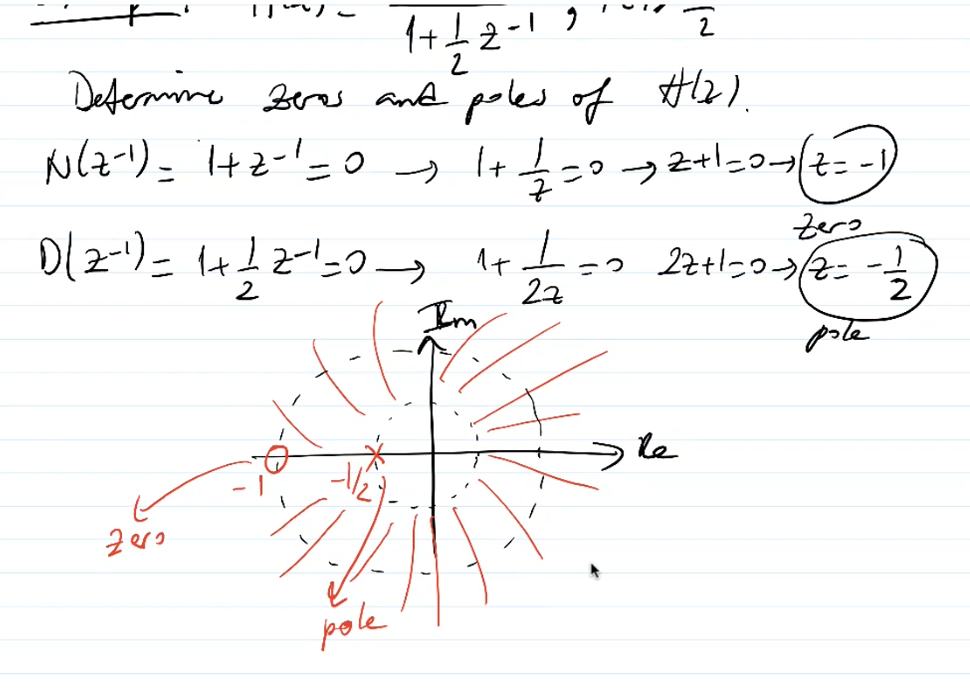 1+1/2 z^-1 , 1/2
Determine zeros and poles of H(z).
N(z^-1) = 1+z^-1 = 0 → 1+1/z = 0 → z+1=0 → z = -1
zero
D(z^-1) = 1+1/2 z^-1 = 0 → 1+1/2z = 0 2z+1=0 → z = -1/2
pole
Im
Re
-1
-1/2
zero
pole